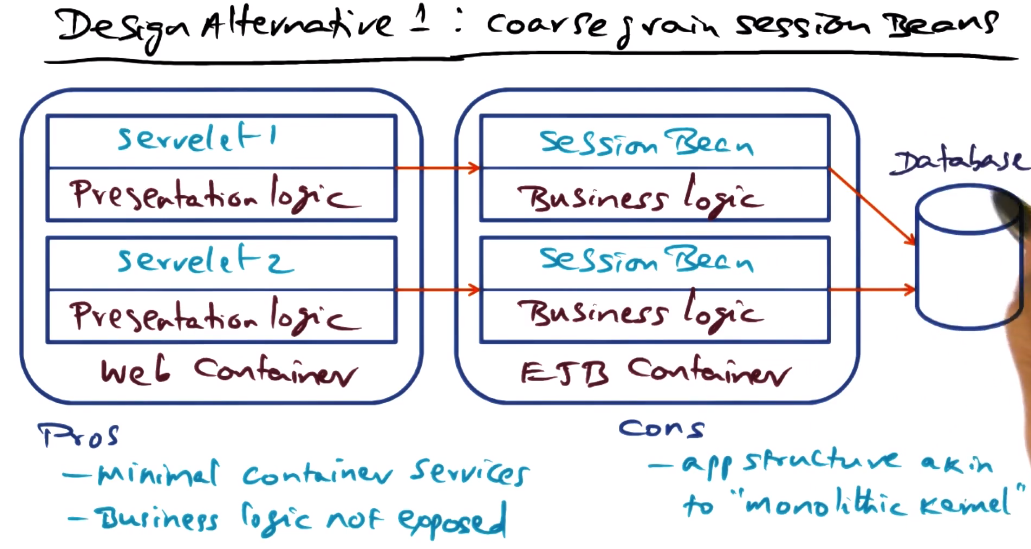 Design Alternative 1 : coarse grain session Beans
servelet 1
Presentation logic
servelet 2
Presentation logic
Web Container
Session Bean
Business logic
Session Bean
Business logic
EJB Container
Database
Pros
- minimal container services
- Business logic not exposed
Cons
- app structure akin
to "monolithic kernel"